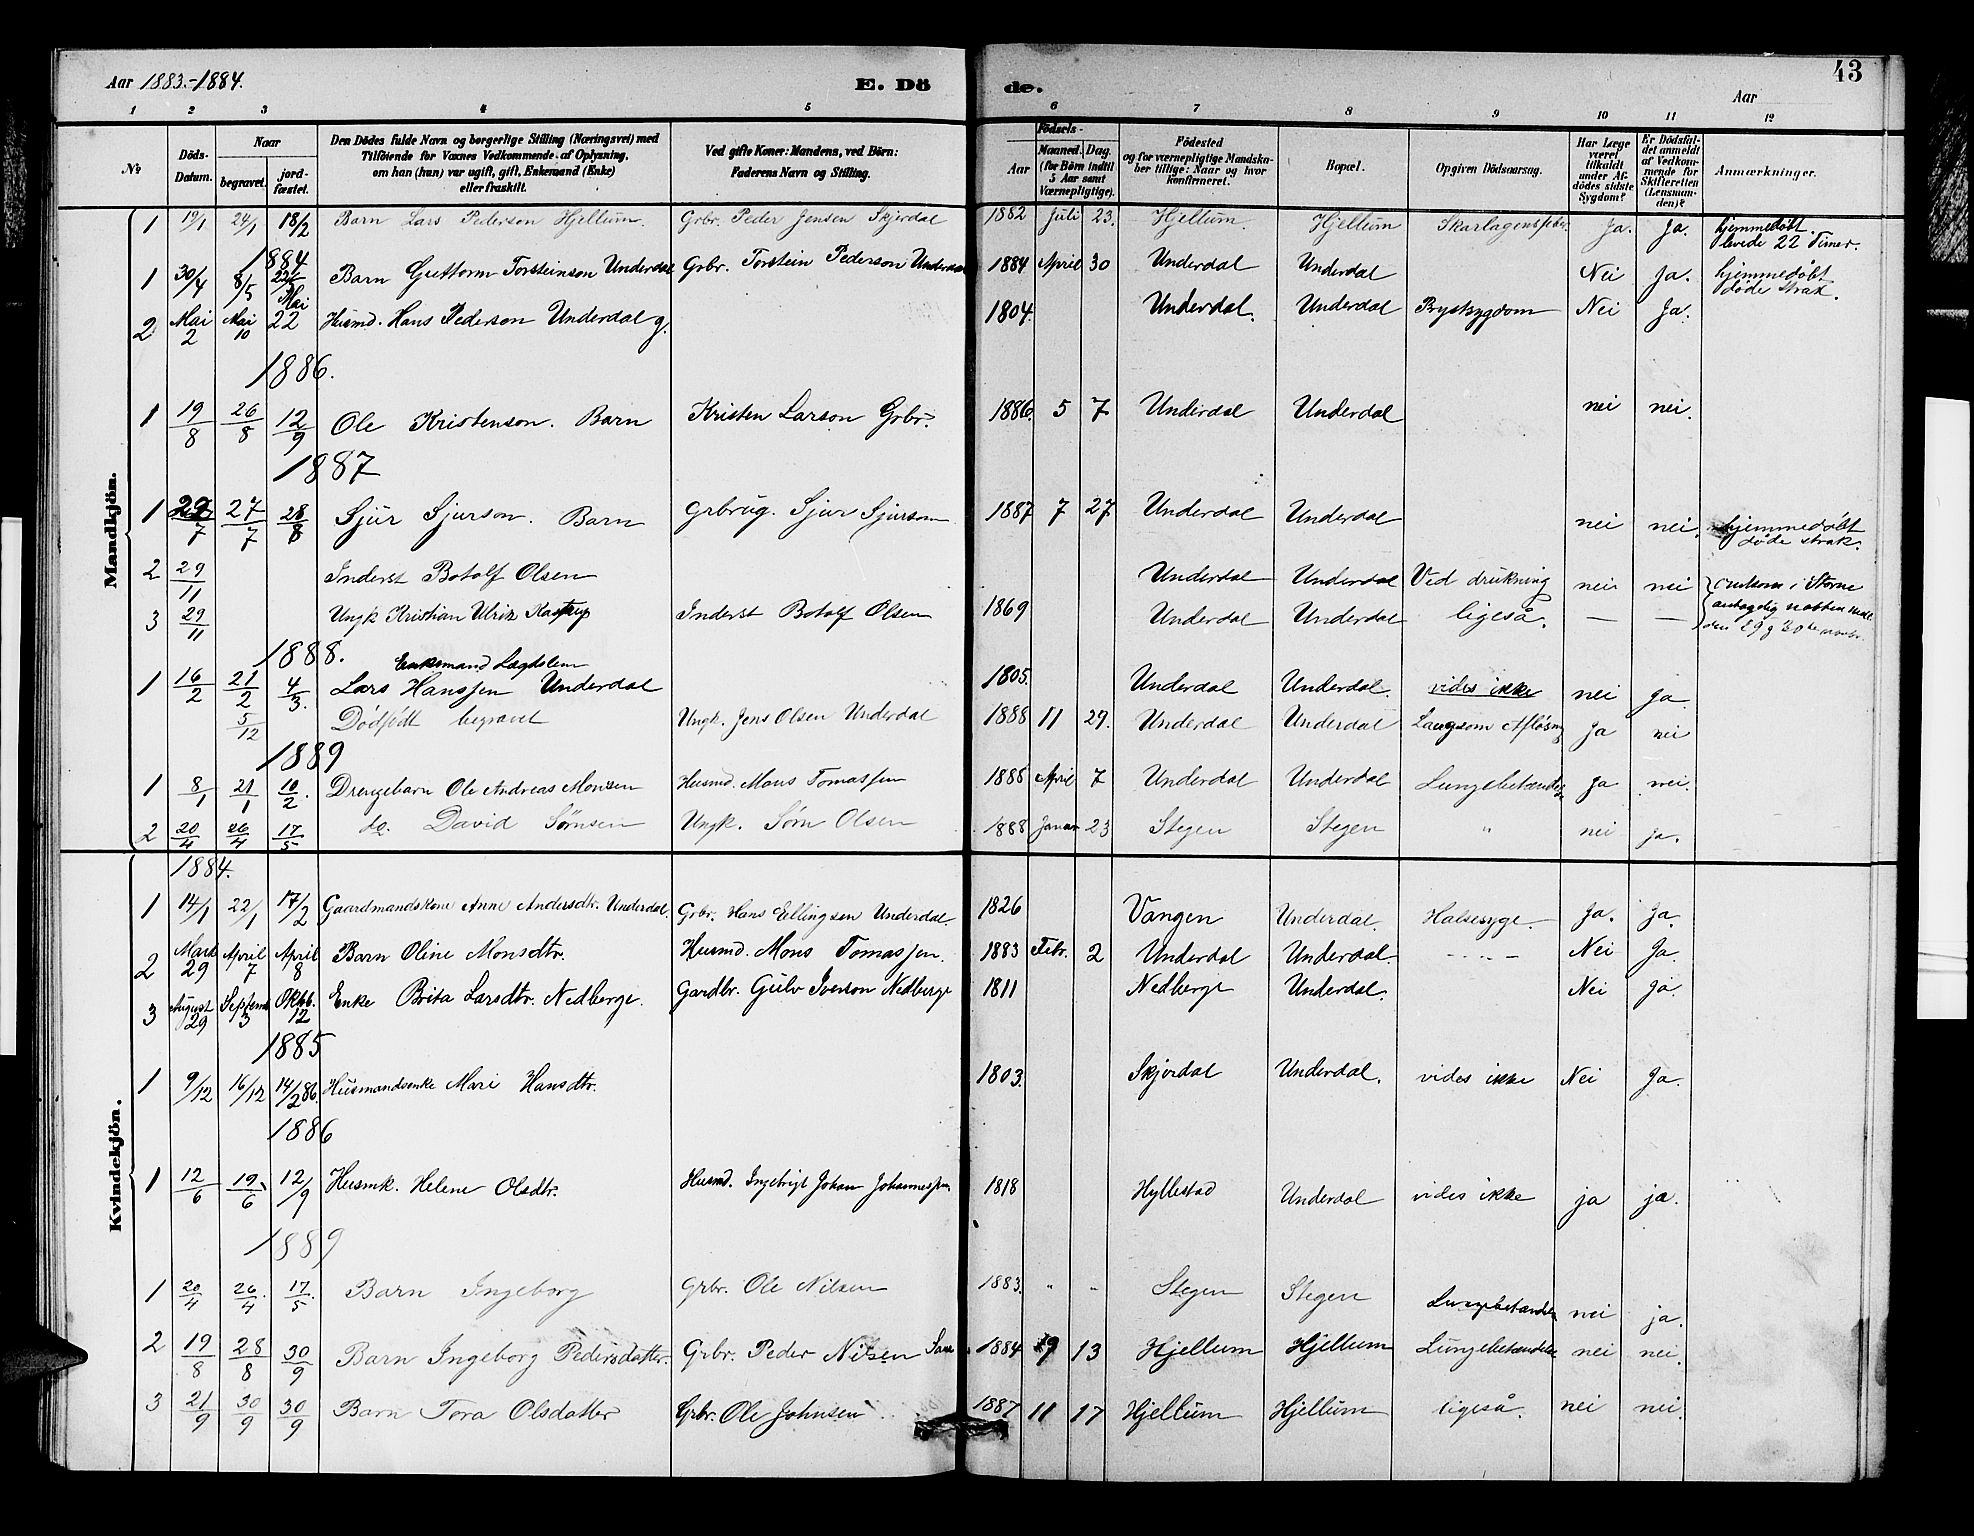 Aar 1883.-1884. E. Dö de. Aar 43
1 2 3 4 5 6 7 8 9 10 11 12
№ Döds-Datum. Naar begravet. jordfæstet. Den Dödes fulde Navn og borgerlige Stilling (Næringsvei) med Tilföiende for Voxnes Vedkommende af Oplysning, om han (hun) var ugift, gift, Enkemand (Enke) eller fraskilt. Ved gifte Koner: Mandens, ved Börn: Faderens Navn og Stilling. Födsels- Aar Maaned. Dag. (for Börn indtil 5 Aar samt Værnepligtige). Födested og for værnepligtige Mandskaber tillige: Naar og hvor konfirmeret. Bopæl. Opgiven Dödsaarsag. Har Læge været tilkaldt under Afdödes sidste Sygdom? Er Dödsfaldet anmeldt af Vedkommende for Skifteretten (Lensmanden)? Anmærkninger.
Mandkjön.
1 19/1 24/1 18/2 Barn Lars Pederson Hjellum. Grbr. Peder Jensen Skjerdal 1882 Juli 23. Hjellum. Hjellum Skarlagensfeber Ja. Ja. hjemmedöbt. levede 22 Timer.
1884
1 30/4 8/5 22/5 Barn Guttorm Torsteinson Underdal Grbr. Torstein Pederson Underdal 1884 April 30 Underdal Underdal Nei Ja. hjemmedöbt döde strax.
2 Mai 2 Mai 10 Mai 22 Husmd. Hans Pederson Underdal g. 1804. Underdal. Underdal Brystsygdom Nei Ja.
1886.
1 19/8 26/8 12/9 Ole Kristenson. Barn Kristen Larson Grbr. 1886. 5 7 Underdal Underdal nei nei.
1887
1 27/7 28/8 Sjur Sjurson. Barn Grbrug. Sjur Sjurson 1887 7 27 Underdal Underdal nei nei. hjemmedöbt döde strax.
2 29/11 Inderst Botolf Olsen Underdal Underdal Ved drukning nei nei omkom i Storm
3 29/11 Ungk. Kristian Ulrik Inderst Botolf Olsen 1869 Underdal Underdal ligeså. — — antagelig natten mell. den 29 g 30te novbr.
1888. Enkemand Lægdslem
1 16/2 21/2 4/3. Lars Hanssen Underdal 1805. Underdal Underdal. vides ikke nei Ja
5/12 Dödfödt begravet Ungk. Jens Olsen Underdal 1888 11 29. Underdal Underdal Langsom Aflösng Ja nei
1889
1 8/1 21/1 10/2. Drengebarn Ole Andreas Monsen Husmd. Mons Tomassen 1888 April 7 Underdal Underdal Lungebetændelse Ja nei.
2 20/4 26/4 17/5 do. David Sörnsen Ungk. Sörn Olsen 1888 Januar 23 Stegen Stegen " nei ja.
Kvindekjön.
1884.
1 14/1 22/1 17/2 Gaardmandskone Anne Andersdtr. Underdal. Grbr. Hans Ellingsen Underdal. 1826 Vangen Underdal. Halsesyge. Ja. Ja.
2 Marts 29 April 7 April 8 Barn Oline Monsdtr. Husmd. Mons Tomassen. 1883 Febr. 2 Underdal Underdal. Nei Ja.
3 August 29 Septembr 3 Oktb. 12 Enke Brita Larsdtr. Nedberge. Gardbr. Gulv Iverson Nedberge 1811 Nedberge Underdal. Nei ja.
1885
1 9/12 16/12 14/2 86 Husmandsenke Mari Hansdtr. 1803. Skjerdal Underdal. vides ikke Nei Ja.
1886
1 12/6 19/6 12/9 Husmk. Helene Olsdtr. Husmd. Ingebrigt Johan Johannessen. 1818 Hyllestad Underdal vides ikke ja ja.
1889
1 20/4 26/4. 17/5. Barn Ingeborg Grbr. Ole Nilsen 1883. " " Stegen Stegen Lungebetændelse nei ja.
2 19/8 28/8 30/9 Barn Ingeborg Pedersdatter. Grbr. Peder Nilsen 1884 9 13 Hjellum Hjellum Lungebetændelse nei nei.
3 21/9 30/9 30/9 Barn Tora Olsdatter Grbr. Ole Johnsen 1887 11 17 Hjellum Hjellum ligeså. nei nei.